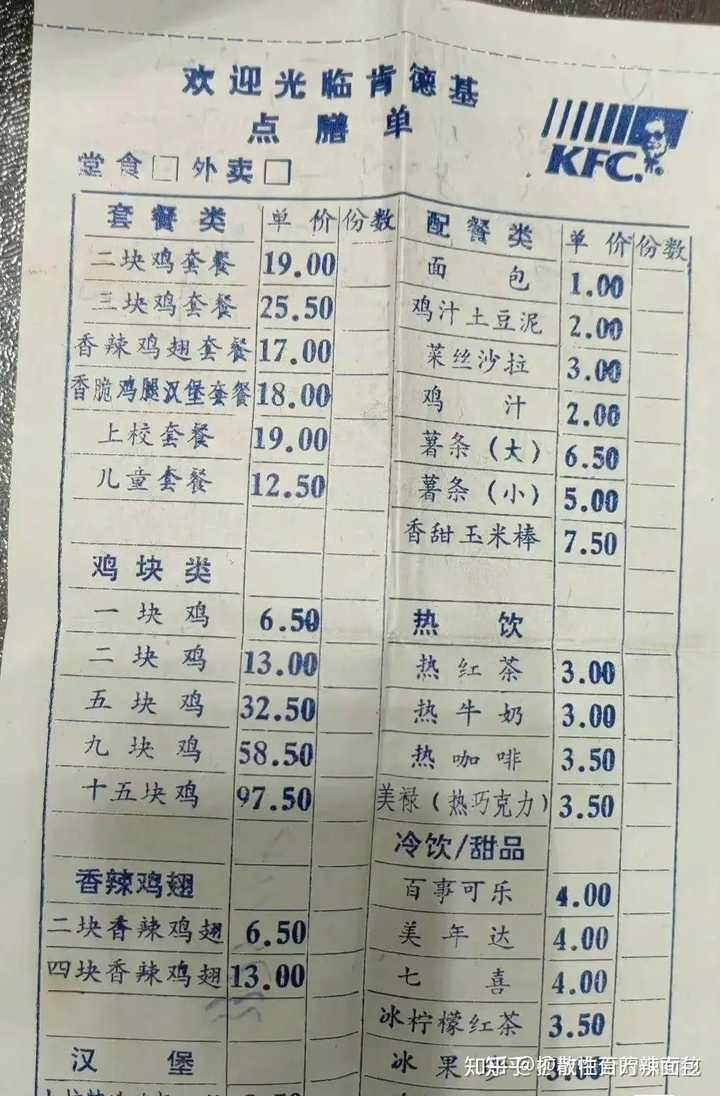 欢迎光临肯德基
点膳单
KFC.
堂食□ 外卖□
套餐类 单价 份数
二块鸡套餐 19.00
三块鸡套餐 25.50
香辣鸡翅套餐 17.00
香脆鸡腿汉堡套餐 18.00
上校套餐 19.00
儿童套餐 12.50
鸡块类
一块鸡 6.50
二块鸡 13.00
五块鸡 32.50
九块鸡 58.50
十五块鸡 97.50
香辣鸡翅
二块香辣鸡翅 6.50
四块香辣鸡翅 13.00
汉堡
配餐类 单价 份数
面包 1.00
鸡汁土豆泥 2.00
菜丝沙拉 3.00
鸡汁 2.00
薯条(大) 6.50
薯条(小) 5.00
香甜玉米棒 7.50
热饮
热红茶 3.00
热牛奶 3.00
热咖啡 3.50
美禄(热巧克力) 3.50
冷饮/甜品
百事可乐 4.00
美年达 4.00
七喜 4.00
冰柠檬红茶 3.50
冰果
知乎